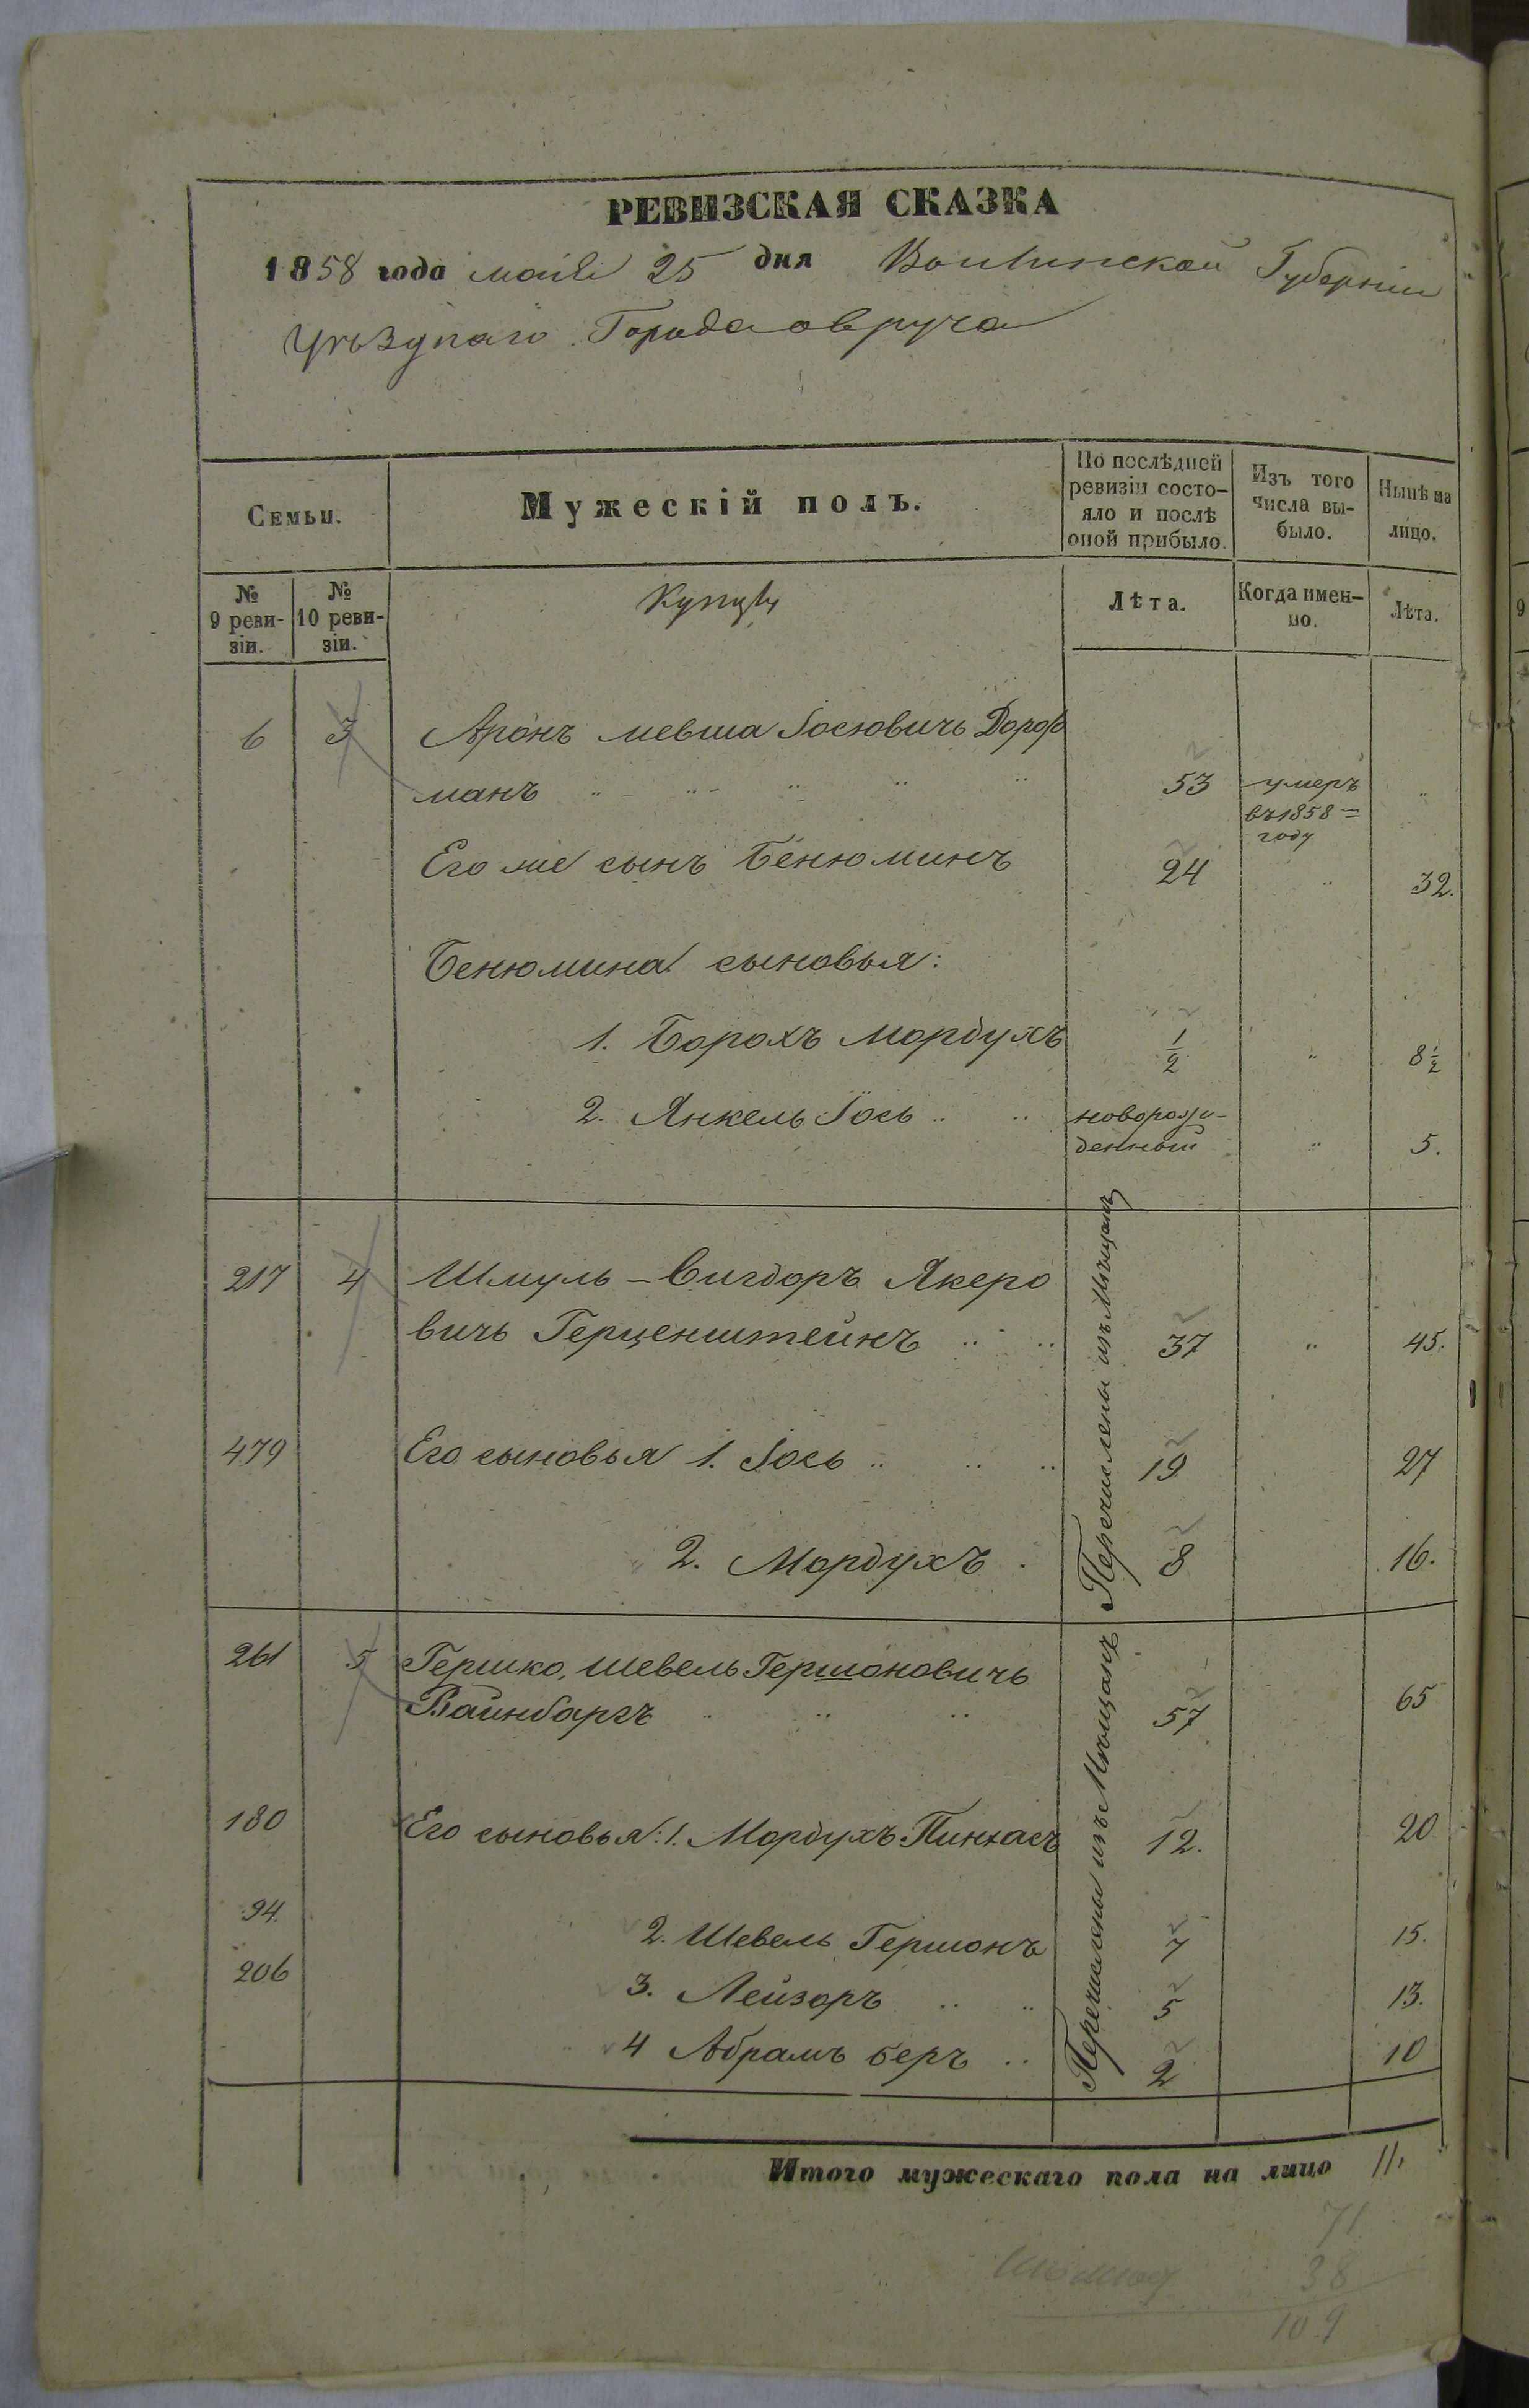 РЕВИЗСКАЯ СКАЗКА
1858 года мая 25 дня Волынской Губерніи
Уѣзднаго Города овруча
Семьи.
Мужескій полъ.
По послѣдней ревизіи состо-
яло и послѣ
оной прибыло.
Изъ того
числа вы-
было.
Нынѣ на
лицо.
№
9 реви-
зіи.
№
10 реви-
зіи.
Купцы
Лѣта.
Когда имен-
но.
Лѣта.
6 3 Аронъ мевша Іосіовичь Дорф
манъ 53 умеръ
въ 1858
году
Его же сынъ Бенюминъ 24 32.
Бенюмина сыновья:
1. Борохъ Мордухъ 1/2 8 1/2
2. Янкель Іось новорож-
денный 5.
217 4 Шмуль-Вигдоръ Якеро
вичь Герценштейнъ 37 45.
479 Его сыновья 1. Іось 19 27
2. Мордухъ 8 16.
Перечислены изъ Мѣщанъ
261 5 Гершко, Шевель Гершоновичь
Вайнбаргъ 57 65
180 Его сыновья: 1. Мордухъ Пинхасъ 12. 20
94. 2. Шевель Гершонъ 7 15.
206 3. Лейзоръ 5 13.
4 Абрамъ беръ 2 10
Перечислены изъ Мѣщанъ
Итого мужескаго пола на лицо 11.
71
38
109